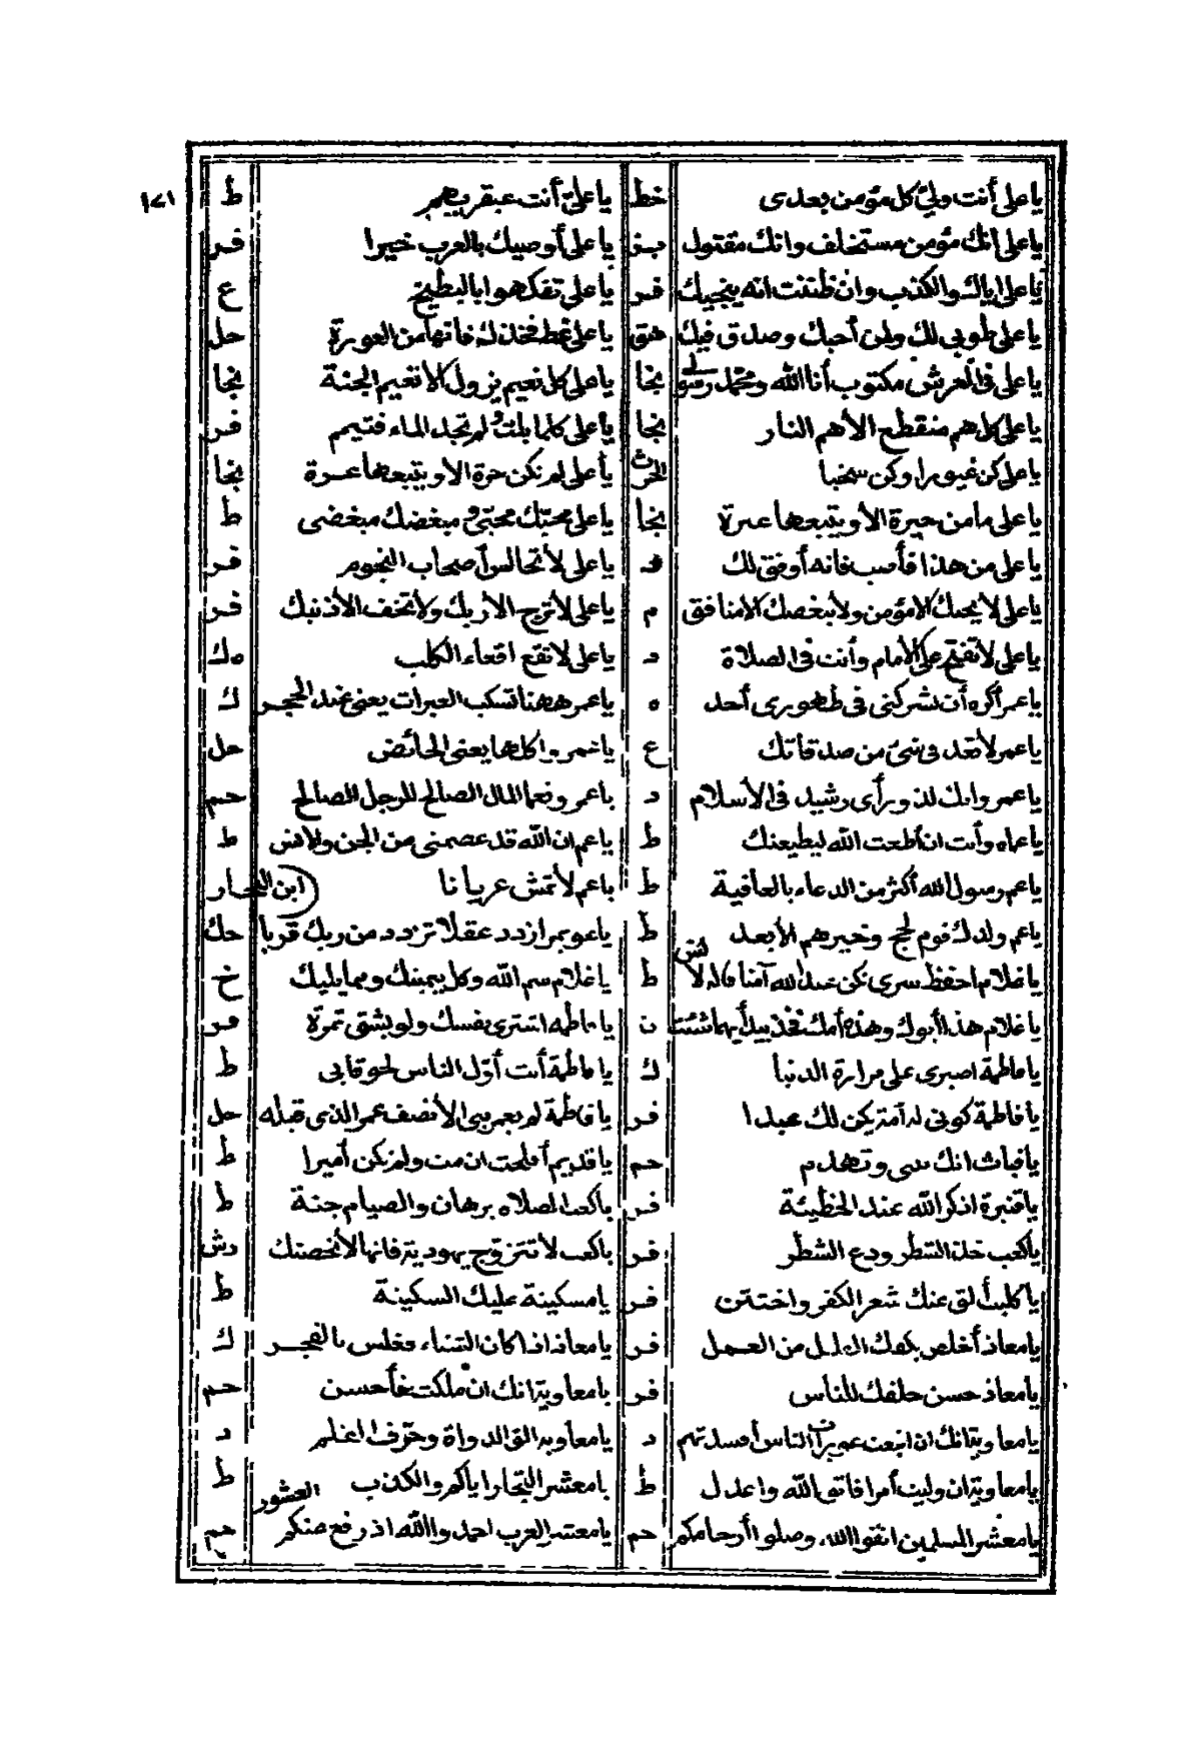 ١٢١
يا على أنت ولىّ كل مؤمن بعدى خط يا علىّ أنت عبقريهم ط
يا على انك مؤمن مستخلف وانك مقتول يا على أوصيك بالعرب خيرا فر
يا على اياك والكذب وان ظننت أنه ينجيك فر يا على تفكهوا بالبطيخ ع
يا على طوبى لمن أحبك وصدق فيك هق يا على غط فخذك فانها من العورة حل
يا على فى العرش مكتوب أنا الله ومحمد رسولى نجا يا على كل نعيم يزول الا نعيم الجنة نجا
يا على كل هم منقطع الا هم النار نجا يا على كلما بلت ولم تجد الماء فتيمم فر
يا على كن غيورا وكن سخيا الحرث يا على لم تكن حبرة الا ويتبعها عبرة نجا
يا على ما من حبرة الا ويتبعها عبرة نجا يا على محبك محبى ومبغضك مبغضى ط
يا على من هذا فأصب فانه أوفق لك ه يا على لا تجالس أصحاب النجوم فر
يا على لا يحبك الا مؤمن ولا يبغضك الا منافق م يا على لا ترج الا ربك ولا تخف الا ذنبك فر
يا على لا تفتح على الامام وأنت فى الصلاة د يا على لا تقع اقعاء الكلب ه ك
يا عمر أكره أن تشركنى فى طهورى أحد ه يا عمر ههنا تسكب العبرات يعنى عند الحجر ك
يا عمر لا تعد فى شئ من صدقاتك ع يا عمر واكلها يعنى الحائض حل
يا عمر وانك لذو رأى رشيد فى الاسلام د يا عمرو نعما المال الصالح للرجل الصالح حم
يا عماه وأنت ان أطعت الله ليطيعنك ط يا عم ان الله قد عصمنى من الجن والانس ط
يا عم رسول الله أكثر من الدعاء بالعافية ط يا عم لا تمش عريانا ابن النجار
يا عم ولدك قوم لحج وخيرهم الأبعد ط يا عويمر ازدد عقلا تزدد من ربك قربا حك
يا غلام احفظ سرى تكن عبد الله آمنا قاله لأنس ط يا غلام سم الله وكل بيمينك ومما يليك خ
يا غلام هذا أبوك وهذه أمك فخذ بيد أيهما شئت ن يا فاطمة اشترى نفسك ولو بشق تمرة فر
يا فاطمة اصبرى على مرارة الدنيا ك يا فاطمة أنت أوّل الناس لحوقا بى ط
يا فاطمة كونى له أمة يكن لك عبدا فر يا فاطمة لم يعمر نبى الا نصف عمر الذى قبله حل
يا قباث انك تبنى وتهدم حم يا قديم أفلحت ان مت ولم تكن أميرا ط
يا قنبرة اذكر الله عند الخطيئة فر يا كعب الصلاة برهان والصيام جنة ط
يا كعب خذ الشطر ودع الشطر فر يا كعب لا تتزوج يهودية فانها لا تحصنك رش
يا كليب ألق عنك شعر الكفر واختتن فر يا مسكينة عليك السكينة ط
يا معاذ أخلص يكفك القليل من العمل فر يا معاذ اذا كان الشتاء فغلس بالفجر ك
يا معاذ حسن خلقك للناس فر يا معاوية انك ان ملكت فأحسن حم
يا معاوية انك ان اتبعت عورات الناس أفسدتهم د يا معاوية الق الدواة وحرّف القلم د
يا معاوية ان وليت أمرا فاتق الله واعدل ط يا معشر التجار اياكم والكذب ط
يا معشر المسلمين اتقوا الله وصلوا أرحامكم حم يا معشر العرب احمدوا الله اذ رفع عنكم العشور حم